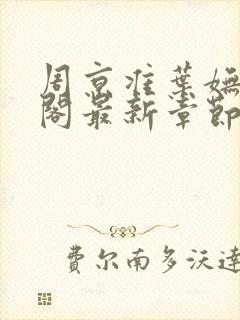 周京淮葉嫵
閣最新章節
費尔南多沃達